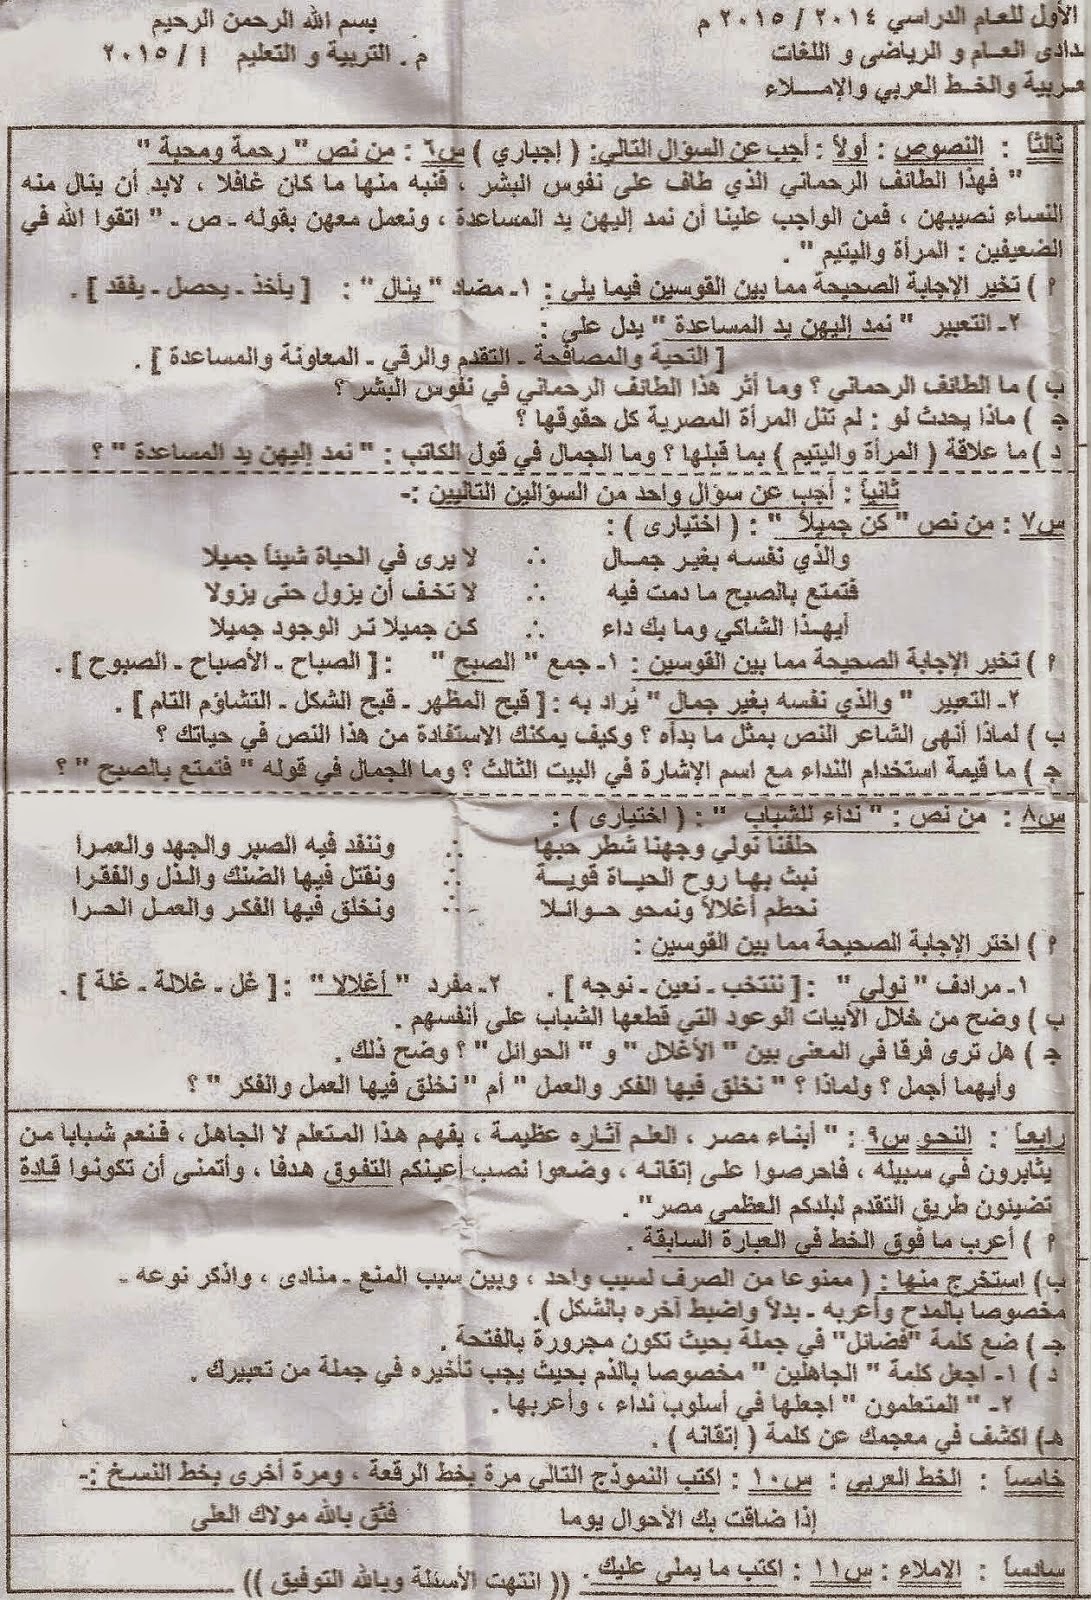 الأول للعام الدراسي ٢٠١٤ / ٢٠١٥ م
بسم الله الرحمن الرحيم
دادى العام و الرياضى و اللغات
م . التربية و التعليم ١ / ٢٠١٥
عربية والخط العربي والإملاء
ثالثاً : النصوص : أولاً : أجب عن السؤال التالي: ( إجباري ) س٦ : من نص " رحمة ومحبة "
" فهذا الطائف الرحماني الذي طاف على نفوس البشر ، فنبه منها ما كان غافلا ، لابد أن ينال منه
النساء نصيبهن ، فمن الواجب علينا أن نمد إليهن يد المساعدة ، ونعمل معهن بقوله ـ ص ـ " اتقوا الله في
الضعيفين : المرأة واليتيم " .
أ ) تخير الإجابة الصحيحة مما بين القوسين فيما يلى : ١ـ مضاد " ينال " : [ يأخذ ـ يحصل ـ يفقد ] .
٢ـ التعبير " نمد إليهن يد المساعدة " يدل على :
[ التحية والمصافحة ـ التقدم والرقي ـ المعاونة والمساعدة ] .
ب ) ما الطائف الرحماني ؟ وما أثر هذا الطائف الرحماني في نفوس البشر ؟
ج ) ماذا يحدث لو : لم تنل المرأة المصرية كل حقوقها ؟
د ) ما علاقة ( المرأة واليتيم ) بما قبلها ؟ وما الجمال في قول الكاتب : " نمد إليهن يد المساعدة " ؟
ثانياً : أجب عن سؤال واحد من السؤالين التاليين :-
س٧ : من نص " كن جميلاً " : ( اختيارى ) :
والذي نفسه بغير جمـال ∴ لا يرى في الحياة شيئاً جميلا
فتمتع بالصبح ما دمت فيه ∴ لا تخف أن يزول حتى يزولا
أيهـذا الشاكي وما بك داء ∴ كـن جميلا تـر الوجود جميلا
أ ) تخير الإجابة الصحيحة مما بين القوسين : ١ـ جمع " الصبح " : [ الصباح ـ الأصباح ـ الصبوح ] .
٢ـ التعبير " والذي نفسه بغير جمال " يُراد به : [ قبح المظهر ـ قبح الشكل ـ التشاؤم التام ] .
ب ) لماذا أنهى الشاعر النص بمثل ما بدأه ؟ وكيف يمكنك الاستفادة من هذا النص في حياتك ؟
ج ) ما قيمة استخدام النداء مع اسم الإشارة في البيت الثالث ؟ وما الجمال في قوله " فتمتع بالصبح " ؟
س٨ : من نص : " نداء للشباب " : ( اختيارى ) :
حلفنا نولي وجهنا شطر حبها ∴ وننفد فيه الصبر والجهد والعمرا
نبث بهـا روح الحيـاة قويـــة ∴ ونقتل فيها الضنك والـذل والفقـرا
نحطم أغلالاً ونمحو حـوائـلا ∴ ونخلق فيها الفكر والعمل الحـرا
أ ) اختر الإجابة الصحيحة مما بين القوسين :
١ـ مرادف " نولي " : [ ننتخب ـ نعين ـ نوجه ] . ٢ـ مفرد " أغلالا " : [ غل ـ غلالة ـ غلة ] .
ب ) وضح من خلال الأبيات الوعود التي قطعها الشباب على أنفسهم .
ج ) هل ترى فرقا في المعنى بين " الأغلال " و " الحوائل " ؟ وضح ذلك .
وأيهما أجمل ؟ ولماذا ؟ " نخلق فيها الفكر والعمل " أم " نخلق فيها العمل والفكر " ؟
رابعاً : النحو س٩ : " أبناء مصر ، العلم آثاره عظيمة ، يفهم هذا المتعلم لا الجاهل ، فنعم شبابا من
يثابرون في سبيله ، فاحرصوا على إتقانه ، وضعوا نصب أعينكم التفوق هدفا ، وأتمنى أن تكونوا قادة
تضيئون طريق التقدم لبلدكم العظمى مصر" .
أ ) أعرب ما فوق الخط في العبارة السابقة .
ب) استخرج منها : ( ممنوعا من الصرف لسبب واحد ، وبين سبب المنع ـ منادى ، واذكر نوعه ـ
مخصوصا بالمدح وأعربه ـ بدلاً واضبط آخره بالشكل ).
جـ ) ضع كلمة "فضائل" في جملة بحيث تكون مجرورة بالفتحة .
د ) ١ـ اجعل كلمة " الجاهلين " مخصوصا بالذم بحيث يجب تأخيره في جملة من تعبيرك .
٢ـ " المتعلمون " اجعلها في أسلوب نداء ، وأعربها .
هـ) اكشف في معجمك عن كلمة ( إتقانه ) .
خامساً : الخط العربى : س١٠ : اكتب النموذج التالى مرة بخط الرقعة ، ومرة أخرى بخط النسخ :-
إذا ضاقت بك الأحوال يوما فثق بالله مولاك العلى
سادساً : الإملاء : س١١ : اكتب ما يملى عليك . (( انتهت الأسئلة وبالله التوفيق ))